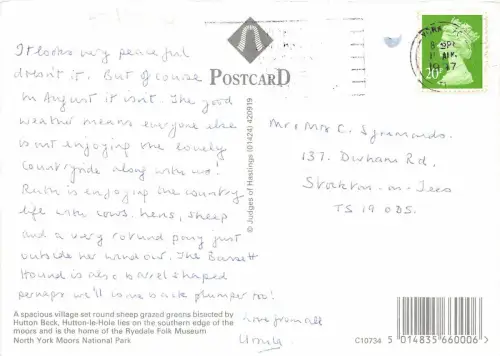 It looks very peaceful
doesn't it. But of course
in August it isn't. The good
weather means everyone else
is out enjoying the lovely
countryside along with us!
Ruth is enjoying the country
life with cows, hens, sheep
and a very rotund pony just
outside her window. The Bassett
Hound is also barrel shaped
perhaps we'll come back plumper too!
Love from all
A spacious village set round sheep grazed greens bisected by
Hutton Beck, Hutton-le-Hole lies on the southern edge of the
moors and is the home of the Ryedale Folk Museum
North York Moors National Park
POSTCARD
© Judges of Hastings (01424) 420919
20
Mr & Mrs C. Symmonds.
137. Durham Rd.
Stockton-on-Tees
TS19 0DS.
C10734
5 014835 660006